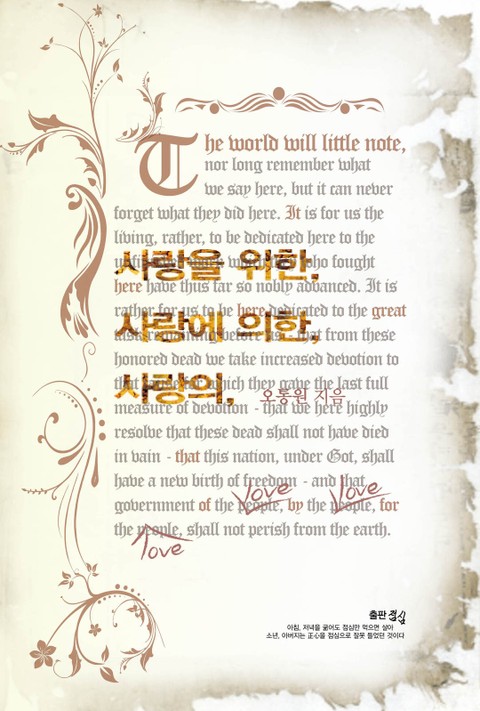 The world will little note,
nor long remember what
we say here, but it can never
forget what they did here. It is for us the
living, rather, to be dedicated here to the
who fought
사랑을 위한,
here have thus far so nobly advanced. It is
rather for us to be here dedicated to the great
사랑에 의한,
that from these
honored dead we take increased devotion to
that which they gave the last full
사랑의,
오통원 지음
measure of devotion - that we here highly
resolve that these dead shall not have died
in vain - that this nation, under Got, shall
have a new birth of freedom - and that
love love
government of the people, by the people, for
the people, shall not perish from the earth.
love
출판 점심
아침, 저녁을 굶어도 점심만 먹으면 살아
소년, 아버지는 正心을 점심으로 잘못 들었던 것이다